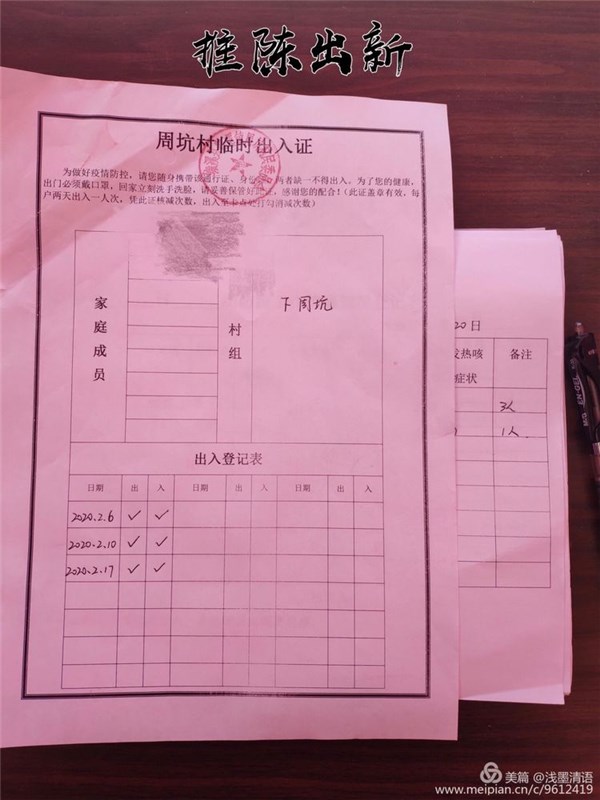 推陈出新
周坑村临时出入证
为做好疫情防控，请您随身携带该通行证、身份证，两者缺一不得出入。为了您的健康，
出门必须戴口罩，回家立刻洗手洗脸，请妥善保管好此证，感谢您的配合！（此证盖章有效，每
户两天出入一人次，凭此证核减次数，出入至卡点处打勾消减次数）
家庭成员
村组
下周坑
出入登记表
日期 出 入 日期 出 入 日期 出 入
2020.2.6 ✓ ✓
2020.2.10 ✓ ✓
2020.2.17 ✓ ✓
20日
发热咳 备注
症状
3人
1人
美篇 @浅墨清语
www.meipian.cn/c/9612419